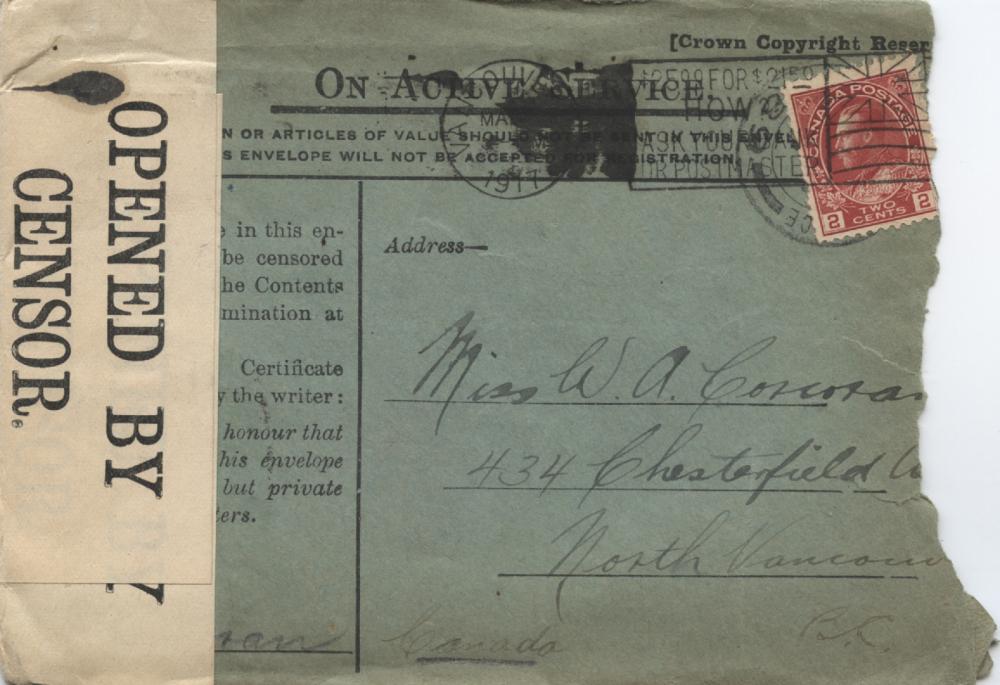 [Crown Copyright Reser
ON ACTIVE SERVICE.
N OR ARTICLES OF VALUE SHOULD NOT BE SENT IN THIS ENVEL
S ENVELOPE WILL NOT BE ACCEPTED FOR REGISTRATION.
MA
1917
$25.00 FOR $21.50
HOW
ASK YOUR
OR POSTMASTER
CANADA POSTAGE
2 TWO CENTS 2
OPENED BY
CENSOR.
e in this en-
be censored
he Contents
mination at
Certificate
y the writer:
honour that
his envelope
but private
ters.
ran
Address—
Miss W. A. Corcoran
434 Chesterfield
North Vancouv
B.C.
Canada